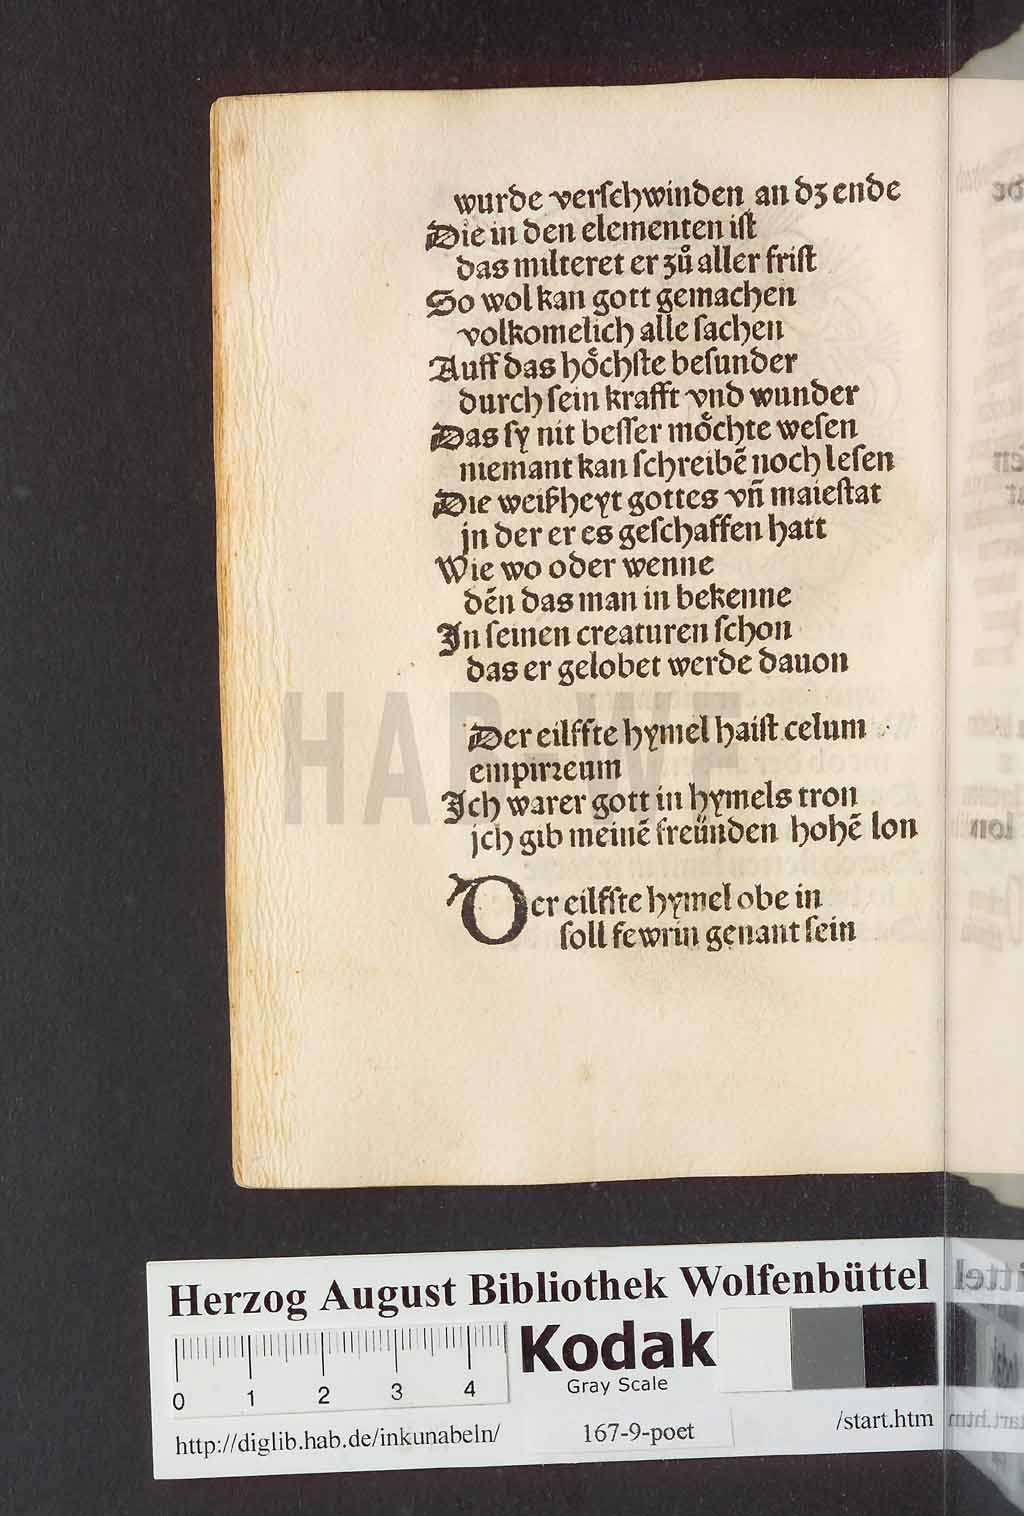 wurde verſchwinden an dʒ ende
Die in den elementen iſt
das milteret er zuͦ aller friſt
So wol kan gott gemachen
volkomelich alle ſachen
Auff das hoͤchſte beſunder
durch ſein krafft vnd wunder
Das ſy nit beſſer moͤchte weſen
niemant kan ſchreibẽ noch leſen
Die weißheyt gottes vñ maieſtat
jn der er es geſchaffen hatt
Wie wo oder wenne
dẽn das man in bekenne
In ſeinen creaturen ſchon
das er gelobet werde dauon
Der eilffte hymel haiſt celum
empirꝛeum
Ich warer gott in hymels tron
jch gib meinẽ freünden hohẽ lon
Der eilffte hymel obe in
ſoll fewrin genant ſein
HAB-WF
Herzog August Bibliothek Wolfenbüttel
Kodak
Gray Scale
0 1 2 3 4
http://diglib.hab.de/inkunabeln/ 167-9-poet /start.htm